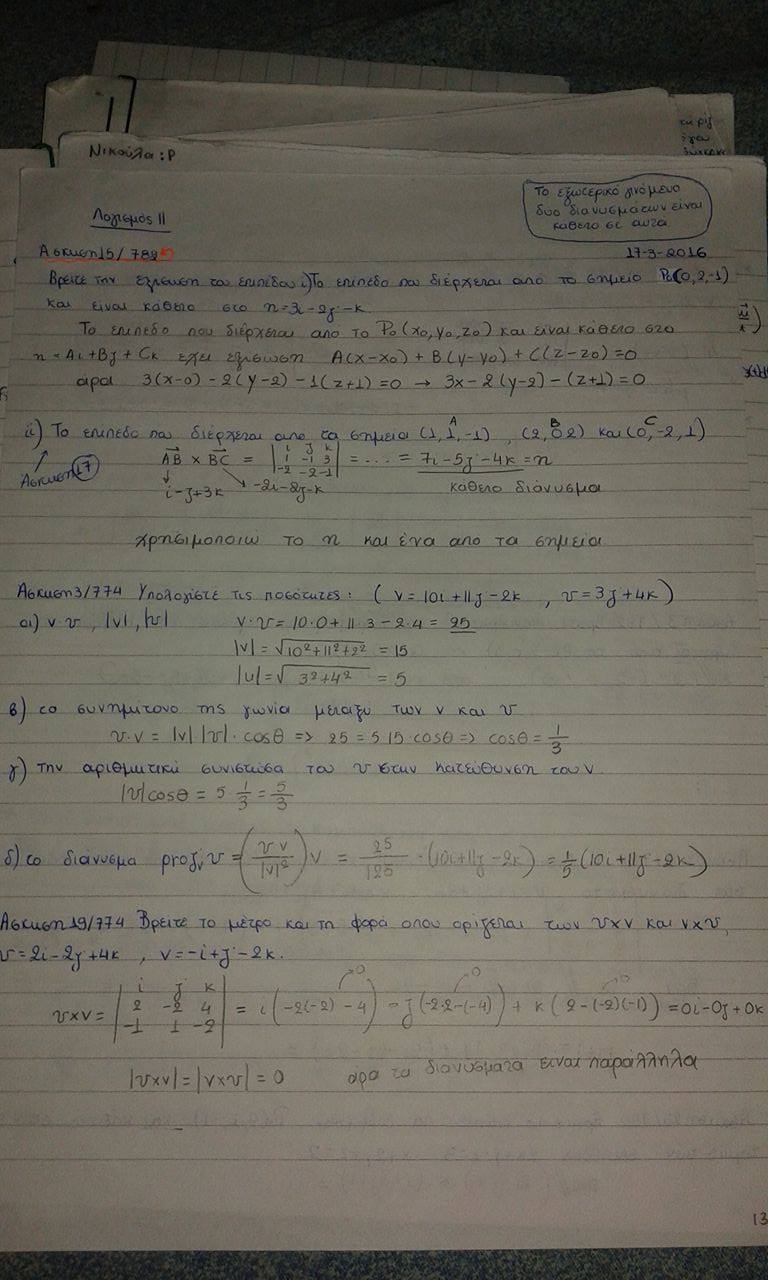 Νικούλα : Ρ
Το εξωτερικό γινόμενο
δυο διανυσμάτων είναι
κάθετο σε αυτα
Λογισμός ΙΙ
Άσκηση 15/782
17-3-2016
Βρείτε την εξίσωση του επιπέδου i) Το επίπεδο που διέρχεται από το σημείο P₀(0,2,-1)
και είναι κάθετο στο n=3i-2j-k.
Το επίπεδο που διέρχεται από το P₀(x₀,y₀,z₀) και είναι κάθετο στο
n=Ai+Bj+Ck έχει εξίσωση A(x-x₀)+B(y-y₀)+C(z-z₀)=0
άρα 3(x-0)-2(y-2)-1(z+1)=0 → 3x-2(y-2)-(z+1)=0
A B C
ii) Το επίπεδο που διέρχεται από τα σημεία (1,1,-1), (2,0 2) και (0,-2,1)
Άσκηση 17
AB x BC = | i j k | 1 -1 3 | -2 -2 -1 | = .... = 7i-5j-4k = n
i-j+3k -2i-2j-k κάθετο διάνυσμα
χρησιμοποιώ το n και ένα απο τα σημεία
Άσκηση 3/774 Υπολογίστε τις ποσότητες: (v=10i+11j-2k , υ=3j+4k)
α) v·υ, |v|, |υ| v·υ=10·0+11·3-2·4=25
|v|=√10²+11²+2² = 15
|u|=√3²+4² = 5
β) το συνημίτονο της γωνία μεταξύ των v και υ
υ·v = |v| |υ|·cosθ => 25=5 15 cosθ => cosθ=1/3
γ) την αριθμιτική συνιστώσα του υ στην κατεύθυνση του v
|υ|cosθ = 5·1/3 = 5/3
δ) το διάνυσμα projᵥυ = (υ v/|v|²)v = 25/125 ·(10i+11j-2k) = 1/5(10i+11j-2k)
Άσκηση 19/774 Βρείτε το μέτρο και τη φορά οπου ορίζεται των υxv και vxυ,
υ=2i-2j+4k , v=-i+j-2k.
0 0 10
υxv = | i j k | 2 -2 4 | -1 1 -2 | = i(-2(-2)-4) - j(-2·2-(-4)) + k(2-(-2)(-1)) = 0i-0j+0k
|υxv|=|vxυ|=0 άρα τα διανύσματα είναι παράλληλα
13